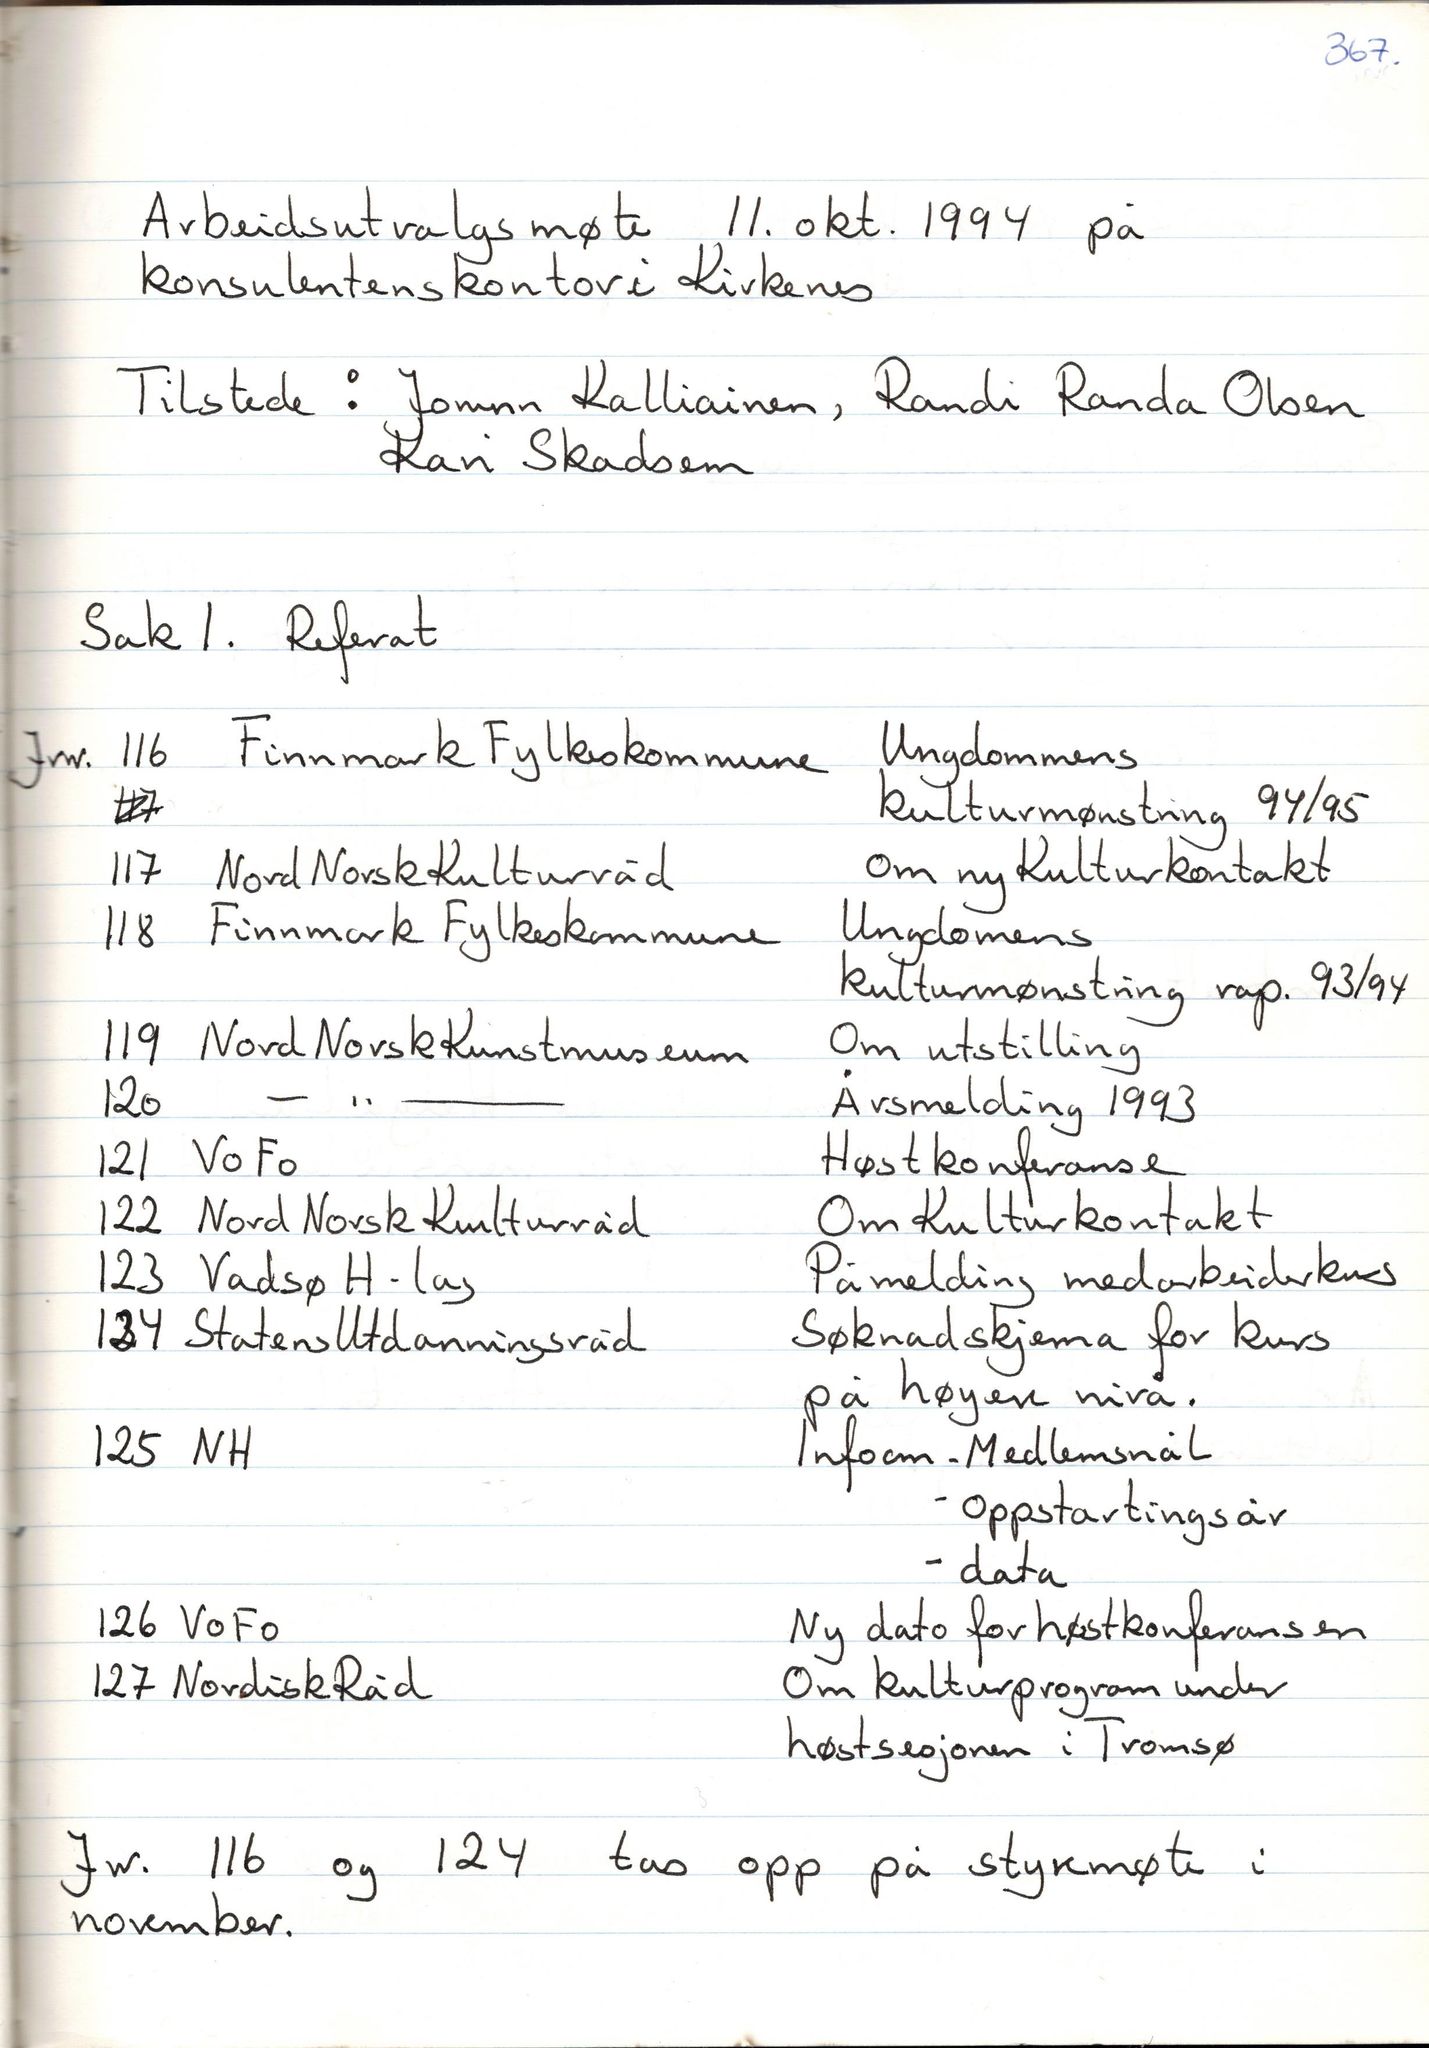 367.
Arbeidsutvalgsmøte 11. okt. 1994 på
konsulentens kontor i Kirkenes
Tilstede : Jorunn Kalliainen, Randi Randa Olsen
Kari Skadsem
Sak 1. Referat
Jnr. 116 Finnmark Fylkeskommune Ungdommens
kulturmønstring 94/95
117 Nord Norsk Kulturråd Om ny Kulturkontakt
118 Finnmark Fylkeskommune Ungdomens
kulturmønstring rap. 93/94
119 Nord Norsk Kunstmuseum Om utstilling
120 — " — Årsmelding 1993
121 VoFo Høstkonferanse
122 Nord Norsk Kulturråd Om Kulturkontakt
123 Vadsø H-lag Påmelding medarbeiderkurs
124 Statens Utdanningsråd Søknadskjema for kurs
på høyere nivå.
125 NH Info om - Medlemsnål
- Oppstartingsår
- data
126 VoFo Ny dato for høstkonferansen
127 Nordisk Råd Om kulturprogram under
høstsesjonen i Tromsø
Jnr. 116 og 124 tas opp på styremøte i
november.